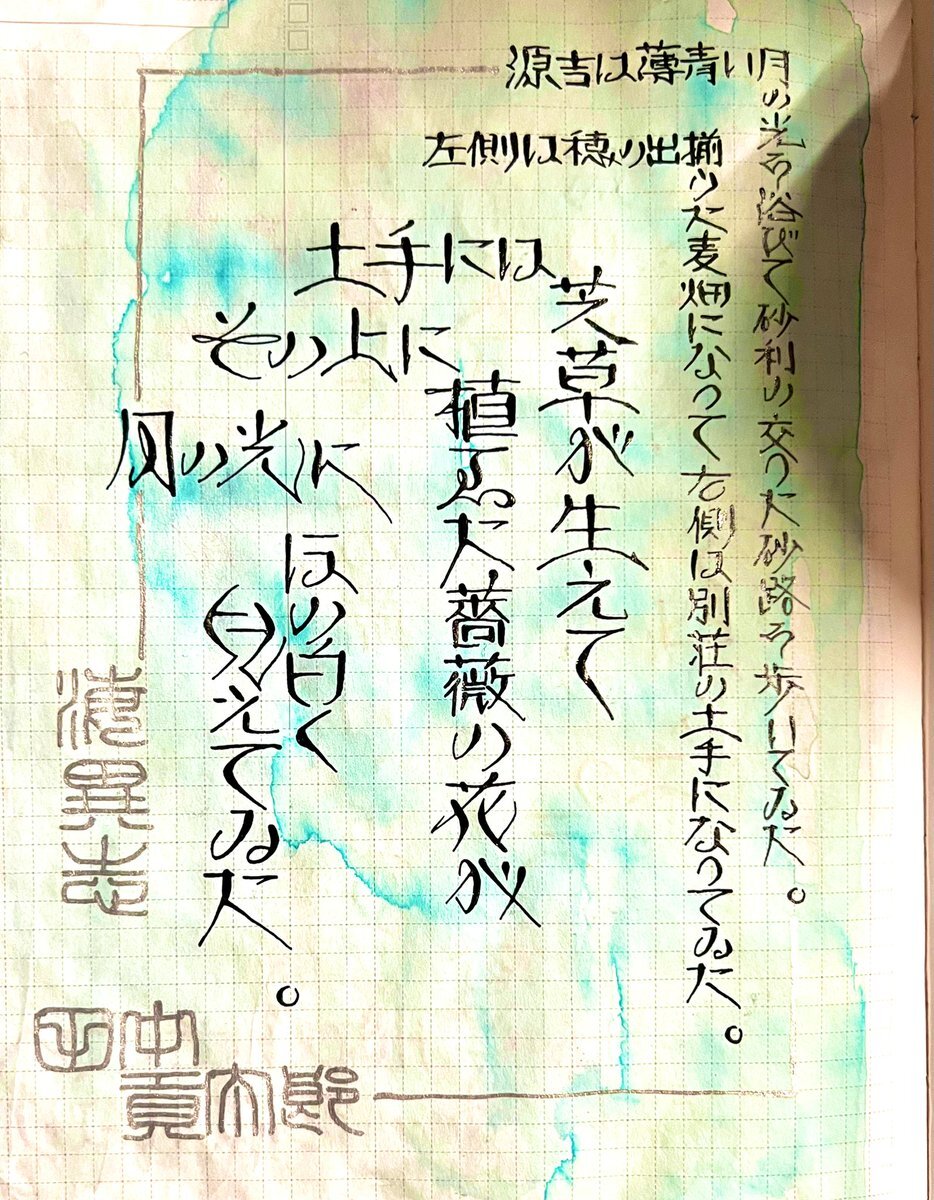 源吉は薄青い月の光を浴びて砂利の交った砂路を歩いてゐた。
左側は穂の出揃った麦畑になって右側は別荘の土手になってゐた。
土手には芝草が生えて
その上に植ゑた薔薇の花が
月の光にほの白く
見えてゐた。
港異志
田中貢太郎